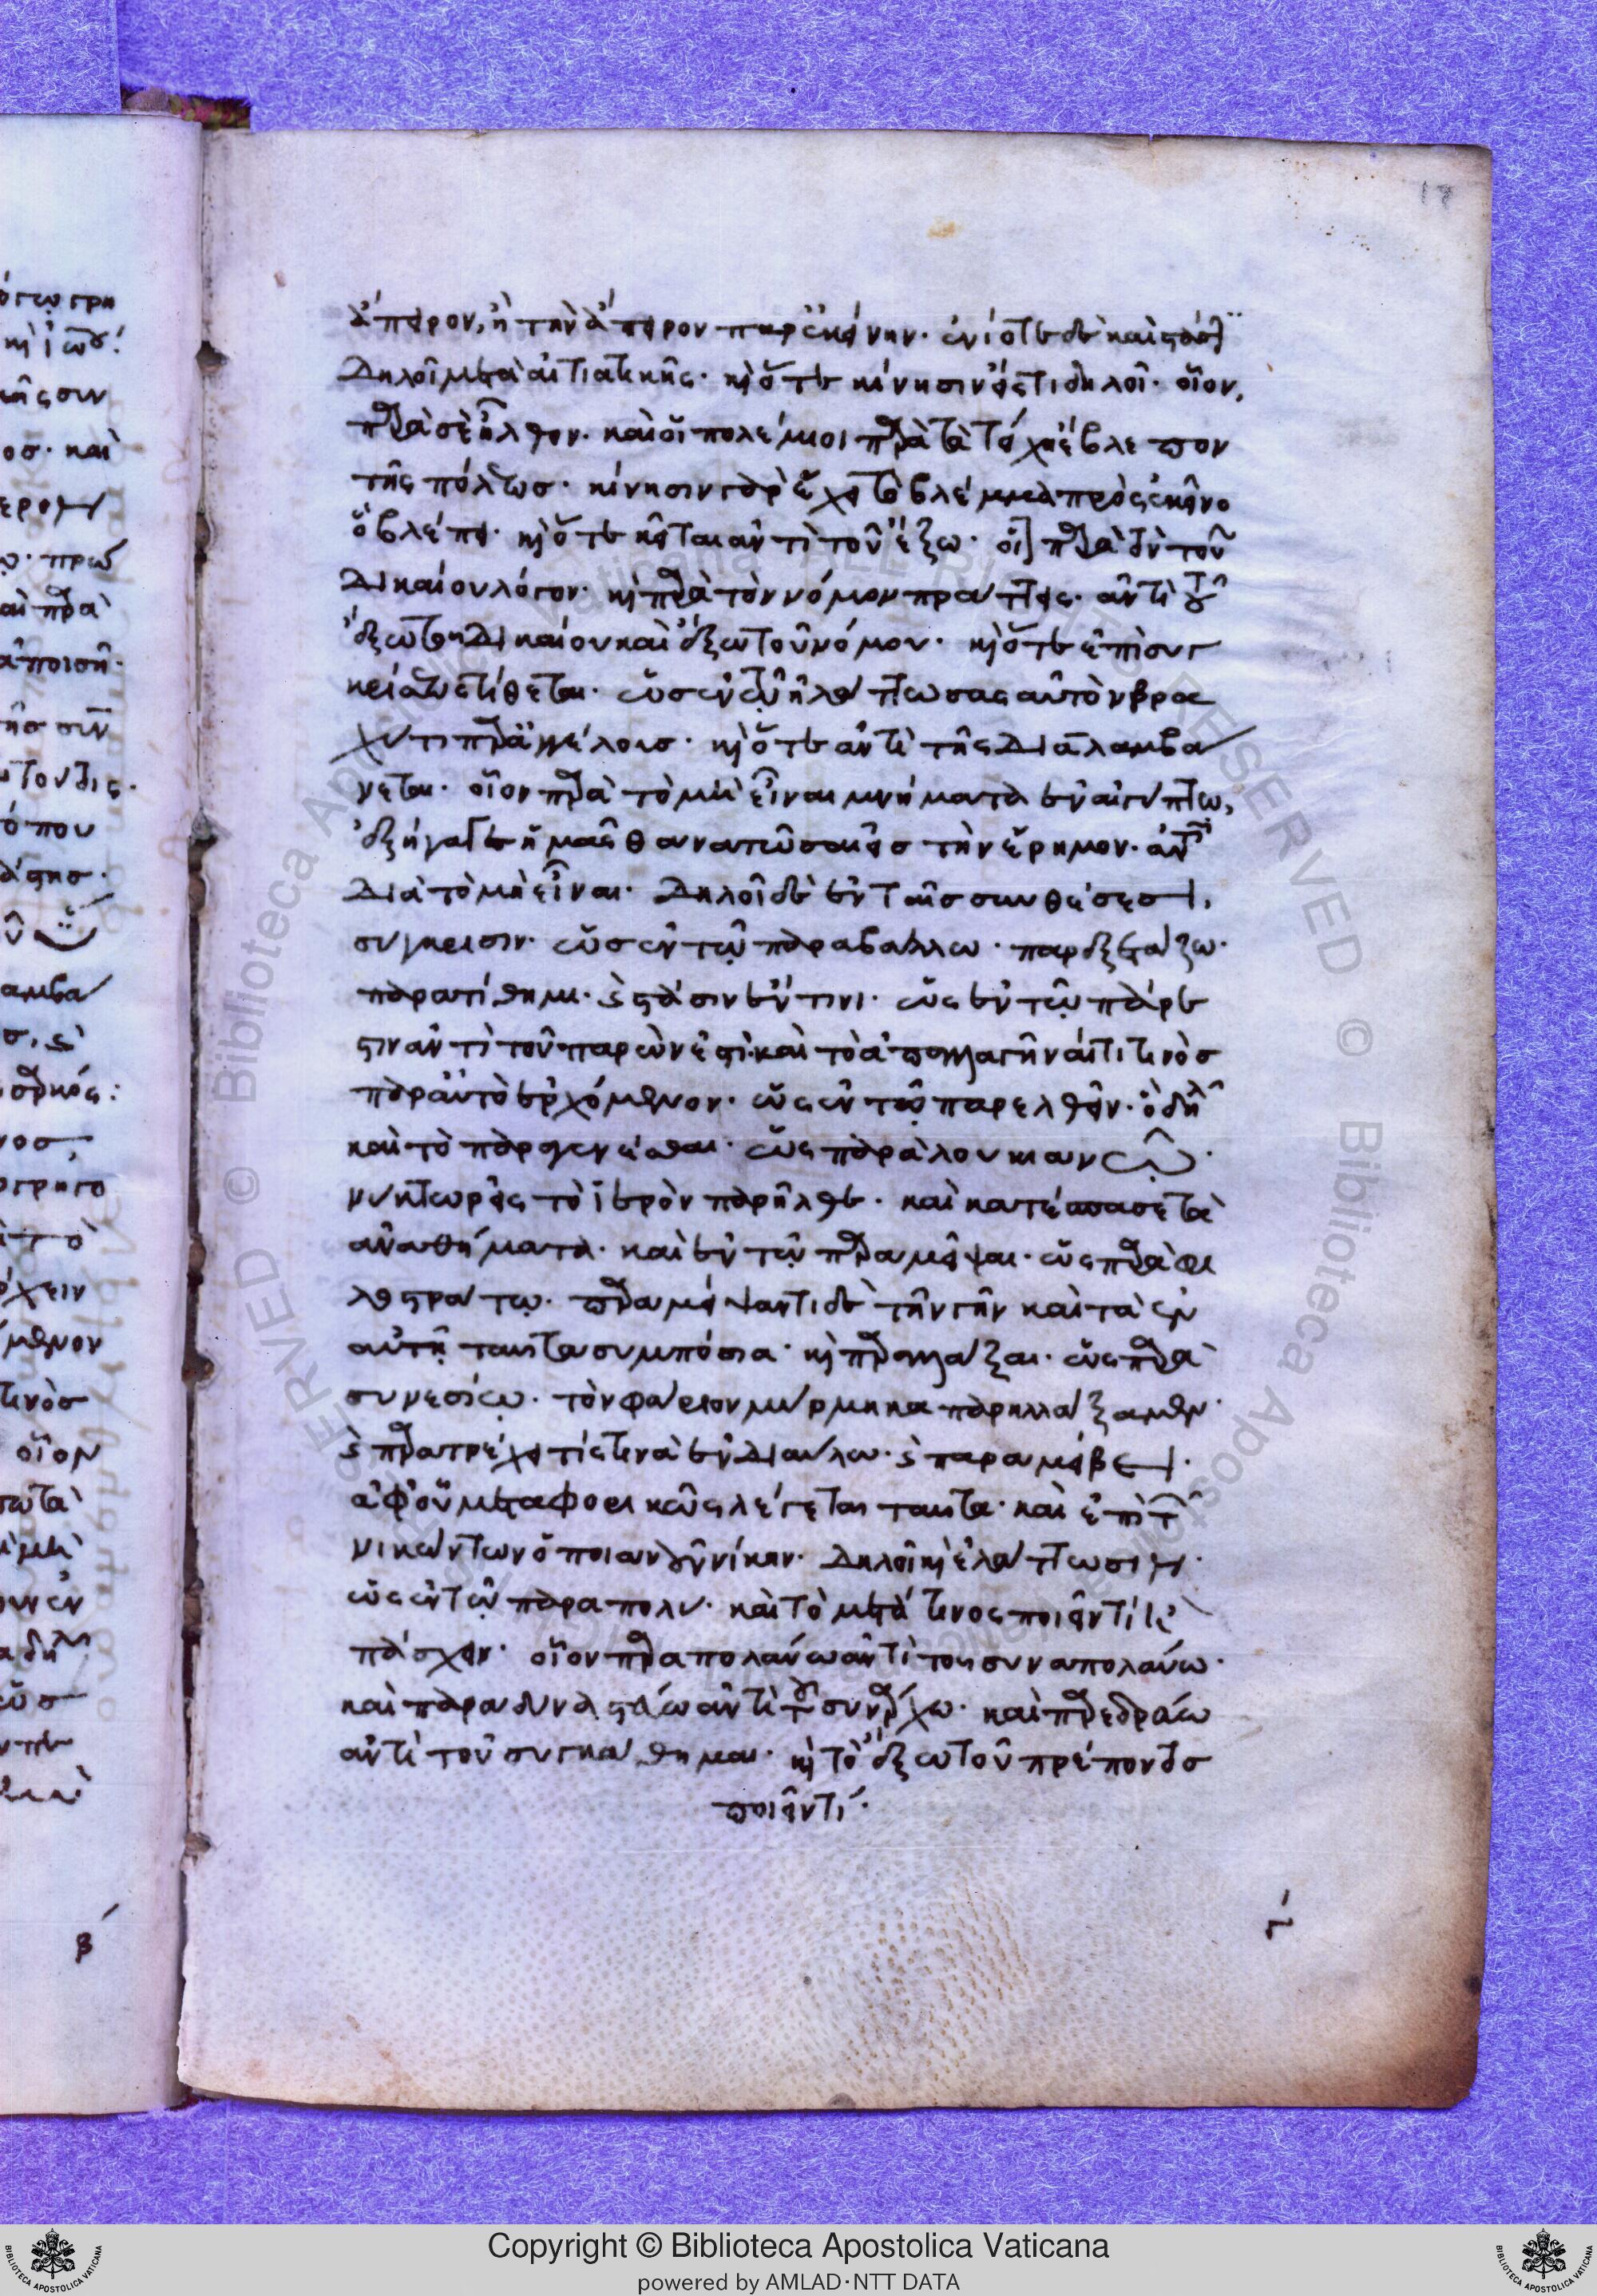 ἄπειρον, ἢ τὴν ἄπειρον παρ' ἐκείνην. ἐνίοτε δὲ καὶ
δηλοῖ μετὰ αἰτιατικῆς. κὶ ὅτε κίνησιν ἔστι δηλοῖ. οἷον,
παρὰ σὲ ἦλθον. καὶ οἱ πολέμιοι παρὰ τὰ τείχη ἔβλεπον
τῆς πόλεως. κίνησιν γὰρ ἔχει τὸ βλέμμα πρὸς ἐκεῖνο
ὃ βλέπει. κὶ ὅτε κεῖται ἀντὶ τοῦ ἔξω. οἷον παρὰ τὸν τοῦ
δικαίου λόγον. κὶ παρὰ τὸν νόμον πράττεις. ἀντὶ τοῦ
ἔξω τοῦ δικαίου καὶ ἔξω τοῦ νόμου. κὶ ὅτε ἐπὶ συγ
κρίσεως τίθεται. ὡς ἐν τῷ ἠλάττωσας αὐτὸν βρα
χύ τι παρ' ἀγγέλους. κὶ ὅτε ἀντὶ τῆς διὰ λαμβά
νεται. οἷον παρὰ τὸ μὴ εἶναι μνήματα ἐν αἰγύπτω,
ἐξήγαγες ἡμᾶς θανατῶσαι εἰς τὴν ἔρημον. ἀντὶ
διὰ τὸ μὴ εἶναι. δηλοῖ δὲ ἐν ταῖς συνθέσεσι,
σύγκρισιν. ὡς ἐν τῷ παραβάλλω. παρεξετάζω.
παρατίθημι. κὶ στάσιν ἔν τινι. ὡς ἐν τῷ πάρε
στιν ἀντὶ τοῦ παρών ἐστι. καὶ τὸ ἀπαλλαγῆναί τι τινὸς
παρ' αὐτὸ ἐρχόμενον. ὡς ἐν τῷ παρελθεῖν. ὃ δηλοῖ
καὶ τὸ παραγενέσθαι. ὡς παρὰ λουκιανῷ.
νύκτωρ εἰς τὸ ἱερὸν παρῆλθε. καὶ κατέσπασε τὰ
ἀναθήματα. καὶ ἐν τῷ παραμεῖψαι. ὡς παρὰ φι
λοστράτω. παραμείψαντι δὲ τὴν γῆν καὶ τὰ ἐν
αὐτῇ ταῦτα συμπόσια. κὶ παραλλάξαι. ὡς παρὰ
συνεσίῳ. τὸν φάριον μύρμηκα παρηλλάξαμεν.
κὶ παρατρέχει τίς τινὰ ἐν διαύλω. κὶ παραμείβεται.
ἀφ' οὗ μεταφορικῶς λέγεται ταῦτα. καὶ ἐπὶ τῶν
νικώντων ὁποιανοῦν νίκην. δηλοῖ κὶ ἐλάττωσιν.
ὡς ἐν τῷ παρὰ πολύ. καὶ τὸ μετά τινος ποιεῖν τί ἢ
πάσχειν. οἷον παραπολαύω ἀντὶ τοῦ συναπολαύω.
καὶ παραδυναστεύω ἀντὶ τοῦ συνάρχω. καὶ παρεδρεύω
ἀντὶ τοῦ συγκάθημαι. κὶ τὸ ἔξω τοῦ πρέποντος
ποιεῖν τί.
γ
β
Copyright © Biblioteca Apostolica Vaticana
powered by AMLAD·NTT DATA